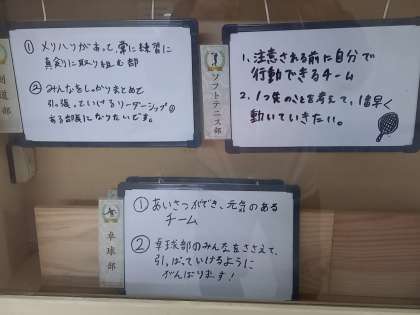 剣道部
① メリハリがあって、常に練習に
真剣に取り組む部
② みんなをしっかりまとめて
引っ張っていけるリーダーシップの
ある部長になりたいです。
ソフトテニス部
1、注意される前に自分で
行動できるチーム
2、1つ先のことを考えて、1番早く
動いていきたい。
卓球部
① あいさつができ、元気のある
チーム
② 卓球部のみんなをささえて、
引っぱっていけるように
がんばります!